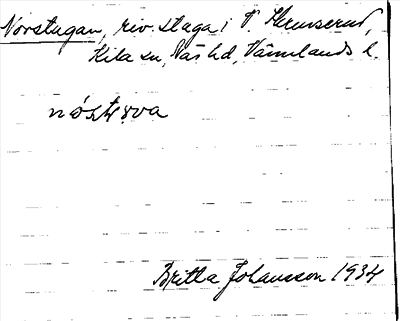 Norstugan, riv. stuga i V. Skrumserud,
Kila sn, Näs hd, Värmlands l.
Britta Johansson 1934